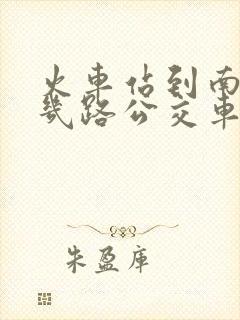 火车佔到南
几路公交车
朱盈库